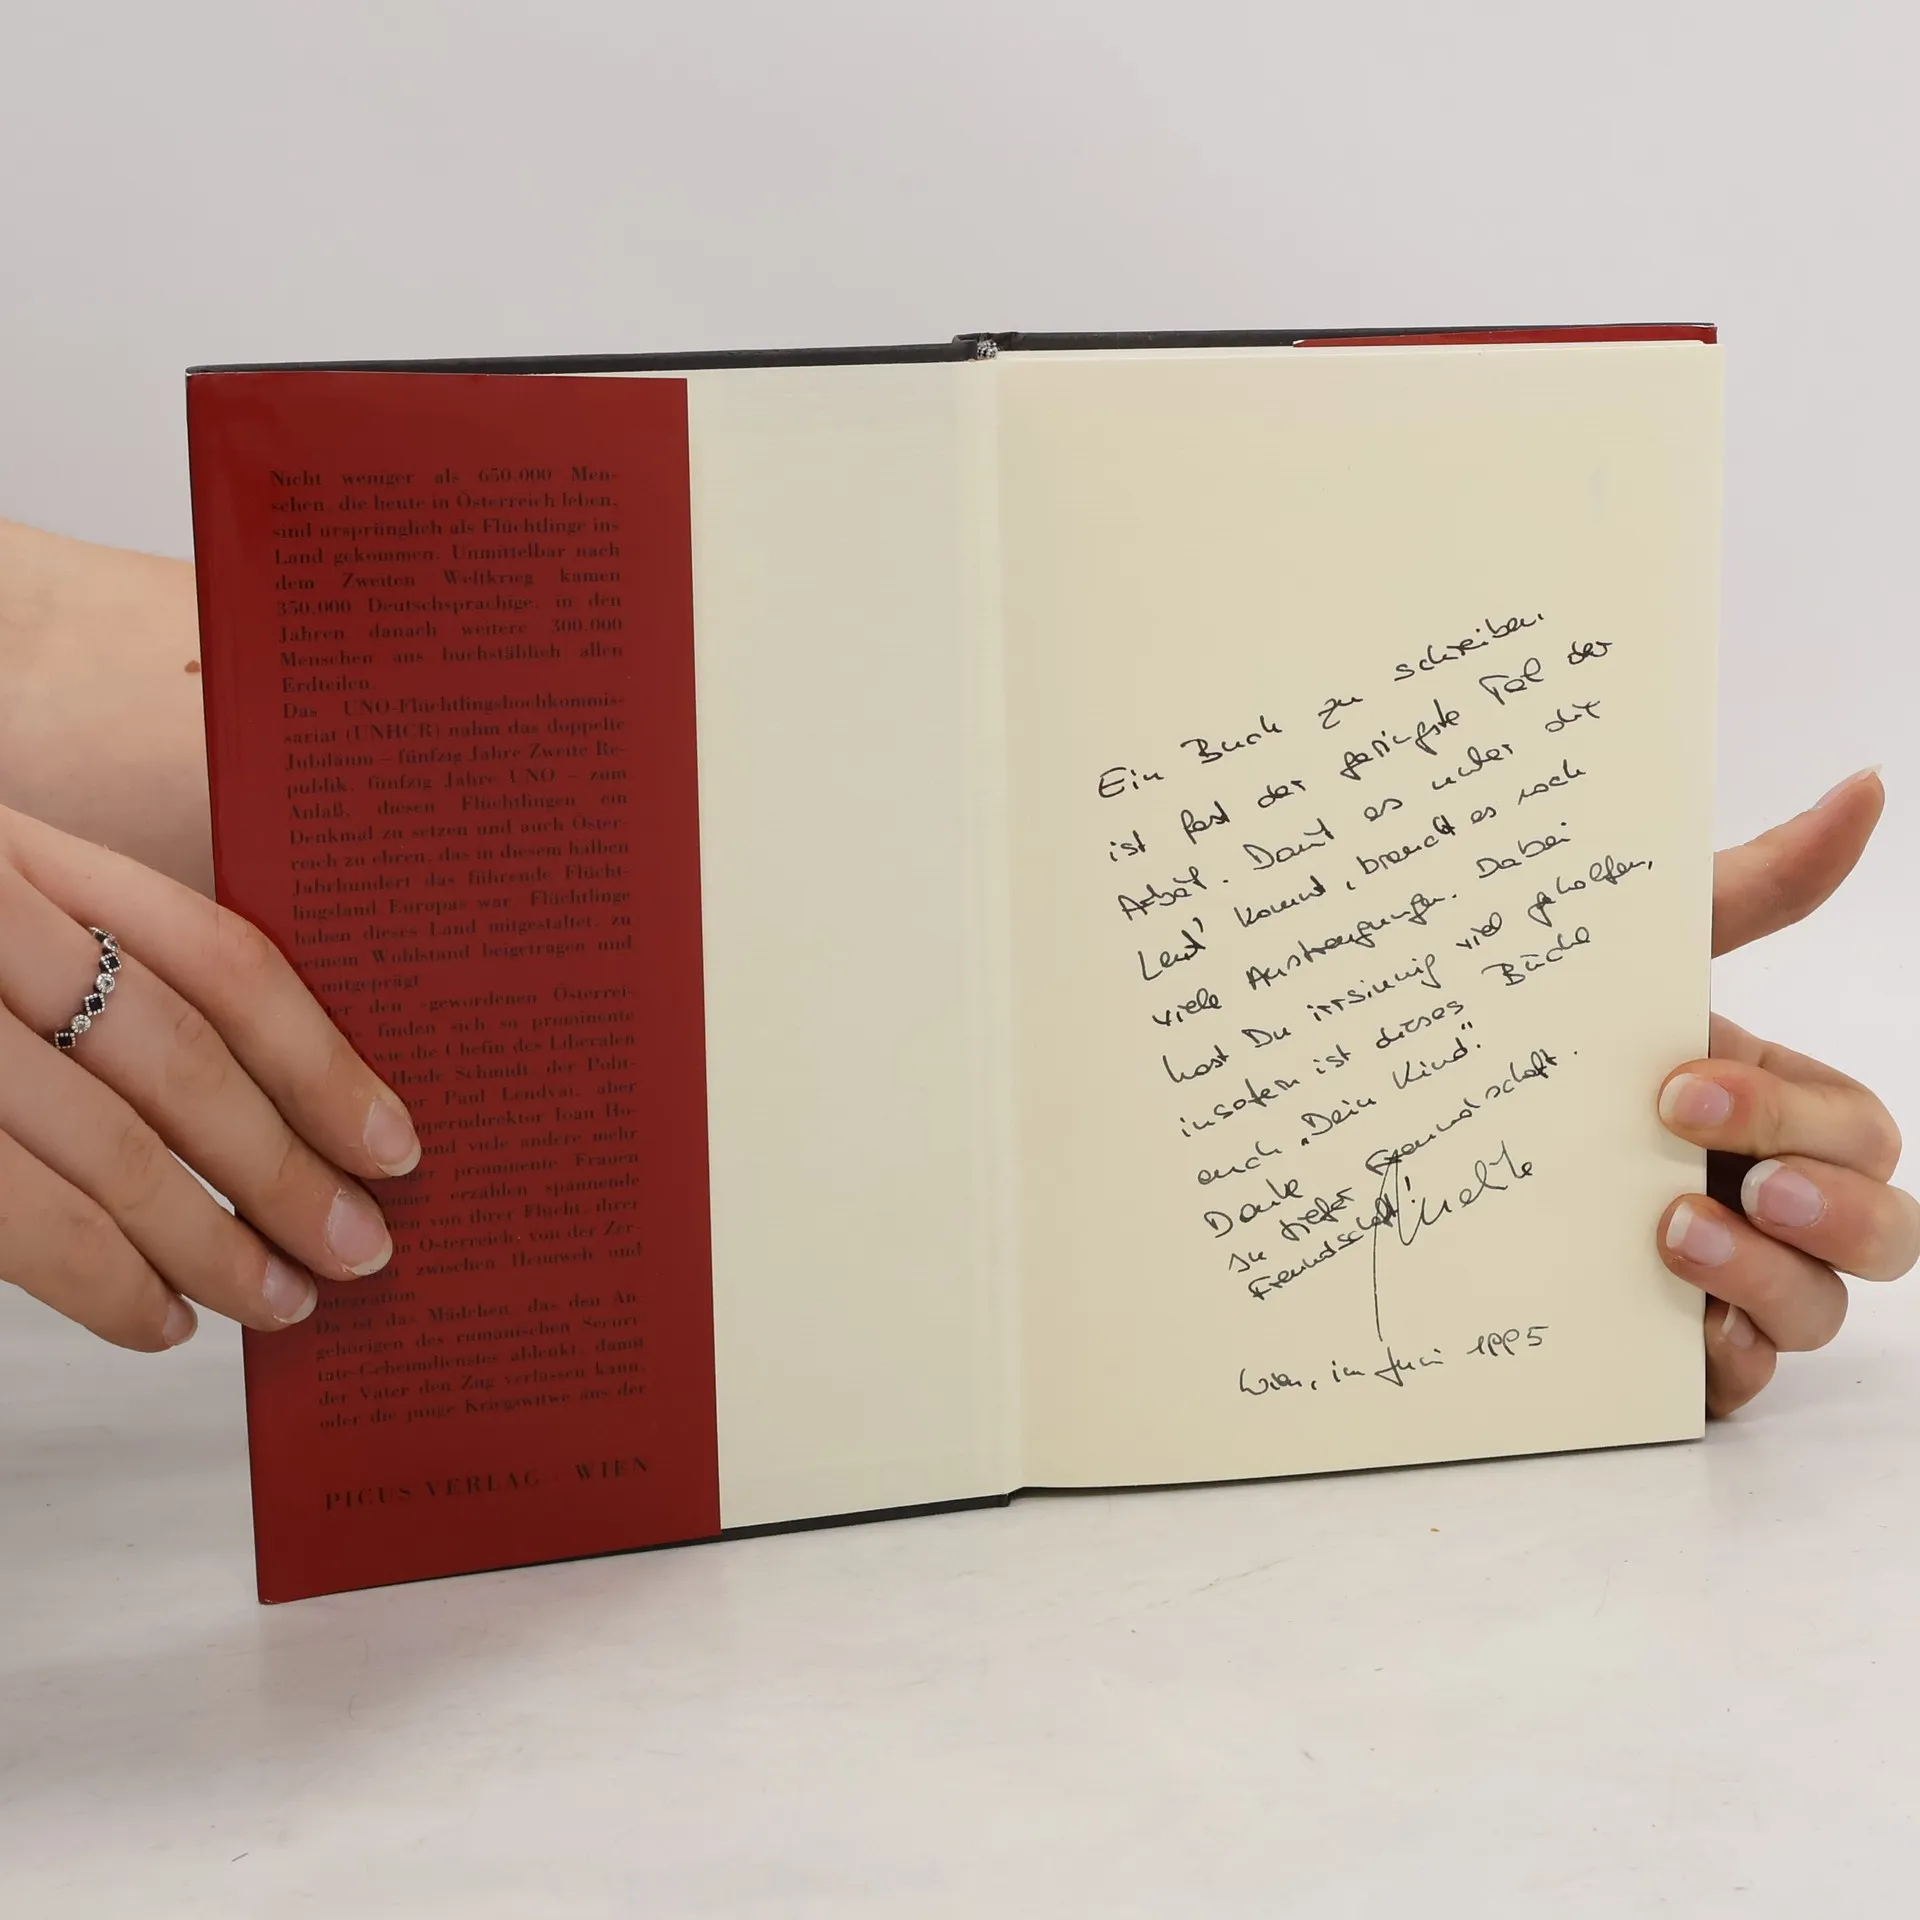 Nicht weniger als 650.000 Men-
schen, die heute in Österreich leben,
sind ursprünglich als Flüchtlinge ins
Land gekommen. Unmittelbar nach
dem Zweiten Weltkrieg kamen
350.000 Deutschsprachige, in den
Jahren danach weitere 300.000
Menschen aus buchstäblich allen
Erdteilen.
Das UNO-Flüchtlingshochkommis-
sariat (UNHCR) nahm das doppelte
Jubiläum – fünfzig Jahre Zweite Re-
publik, fünfzig Jahre UNO – zum
Anlaß, diesen Flüchtlingen ein
Denkmal zu setzen und auch Öster-
reich zu ehren, das in diesem halben
Jahrhundert das führende Flücht-
lingsland Europas war. Flüchtlinge
haben dieses Land mitgestaltet, zu
seinem Wohlstand beigetragen und
mitgeprägt
den »gewordenen Österrei-
finden sich so prominente
wie die Chefin des Liberalen
Heide Schmidt, der Polit-
Paul Lendvai, aber
operndirektor Ioan Ho-
und viele andere mehr
prominente Frauen
erzählen spannende
von ihrer Flucht, ihrer
in Österreich, von der Zer-
zwischen Heimweh und
Integration
Da ist das Mädchen, das den An-
gehörigen des rumänischen Securi-
tate-Geheimdienstes ablenkt, damit
der Vater den Zug verlassen kann,
oder die junge Kriegswitwe aus der
PICUS VERLAG · WIEN
Ein Buch zu schreiben,
ist fast der geringste Teil der
Arbeit. Damit es unter die
Leut' kommt, braucht es noch
viele Anstrengungen. Dabei
hast Du irrsinnig viel geholfen,
insofern ist dieses Büche
auch „Dein Kind".
Danke Freundschaft.
In tiefer
Freundschaft!
Wien, im Juni 1995